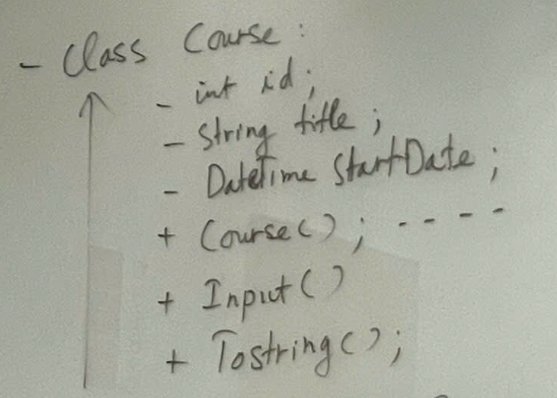 - Class Course :
- int id ;
- String title ;
- DateTime StartDate ;
+ Course() ; - - - -
+ Input()
+ Tostring() ;